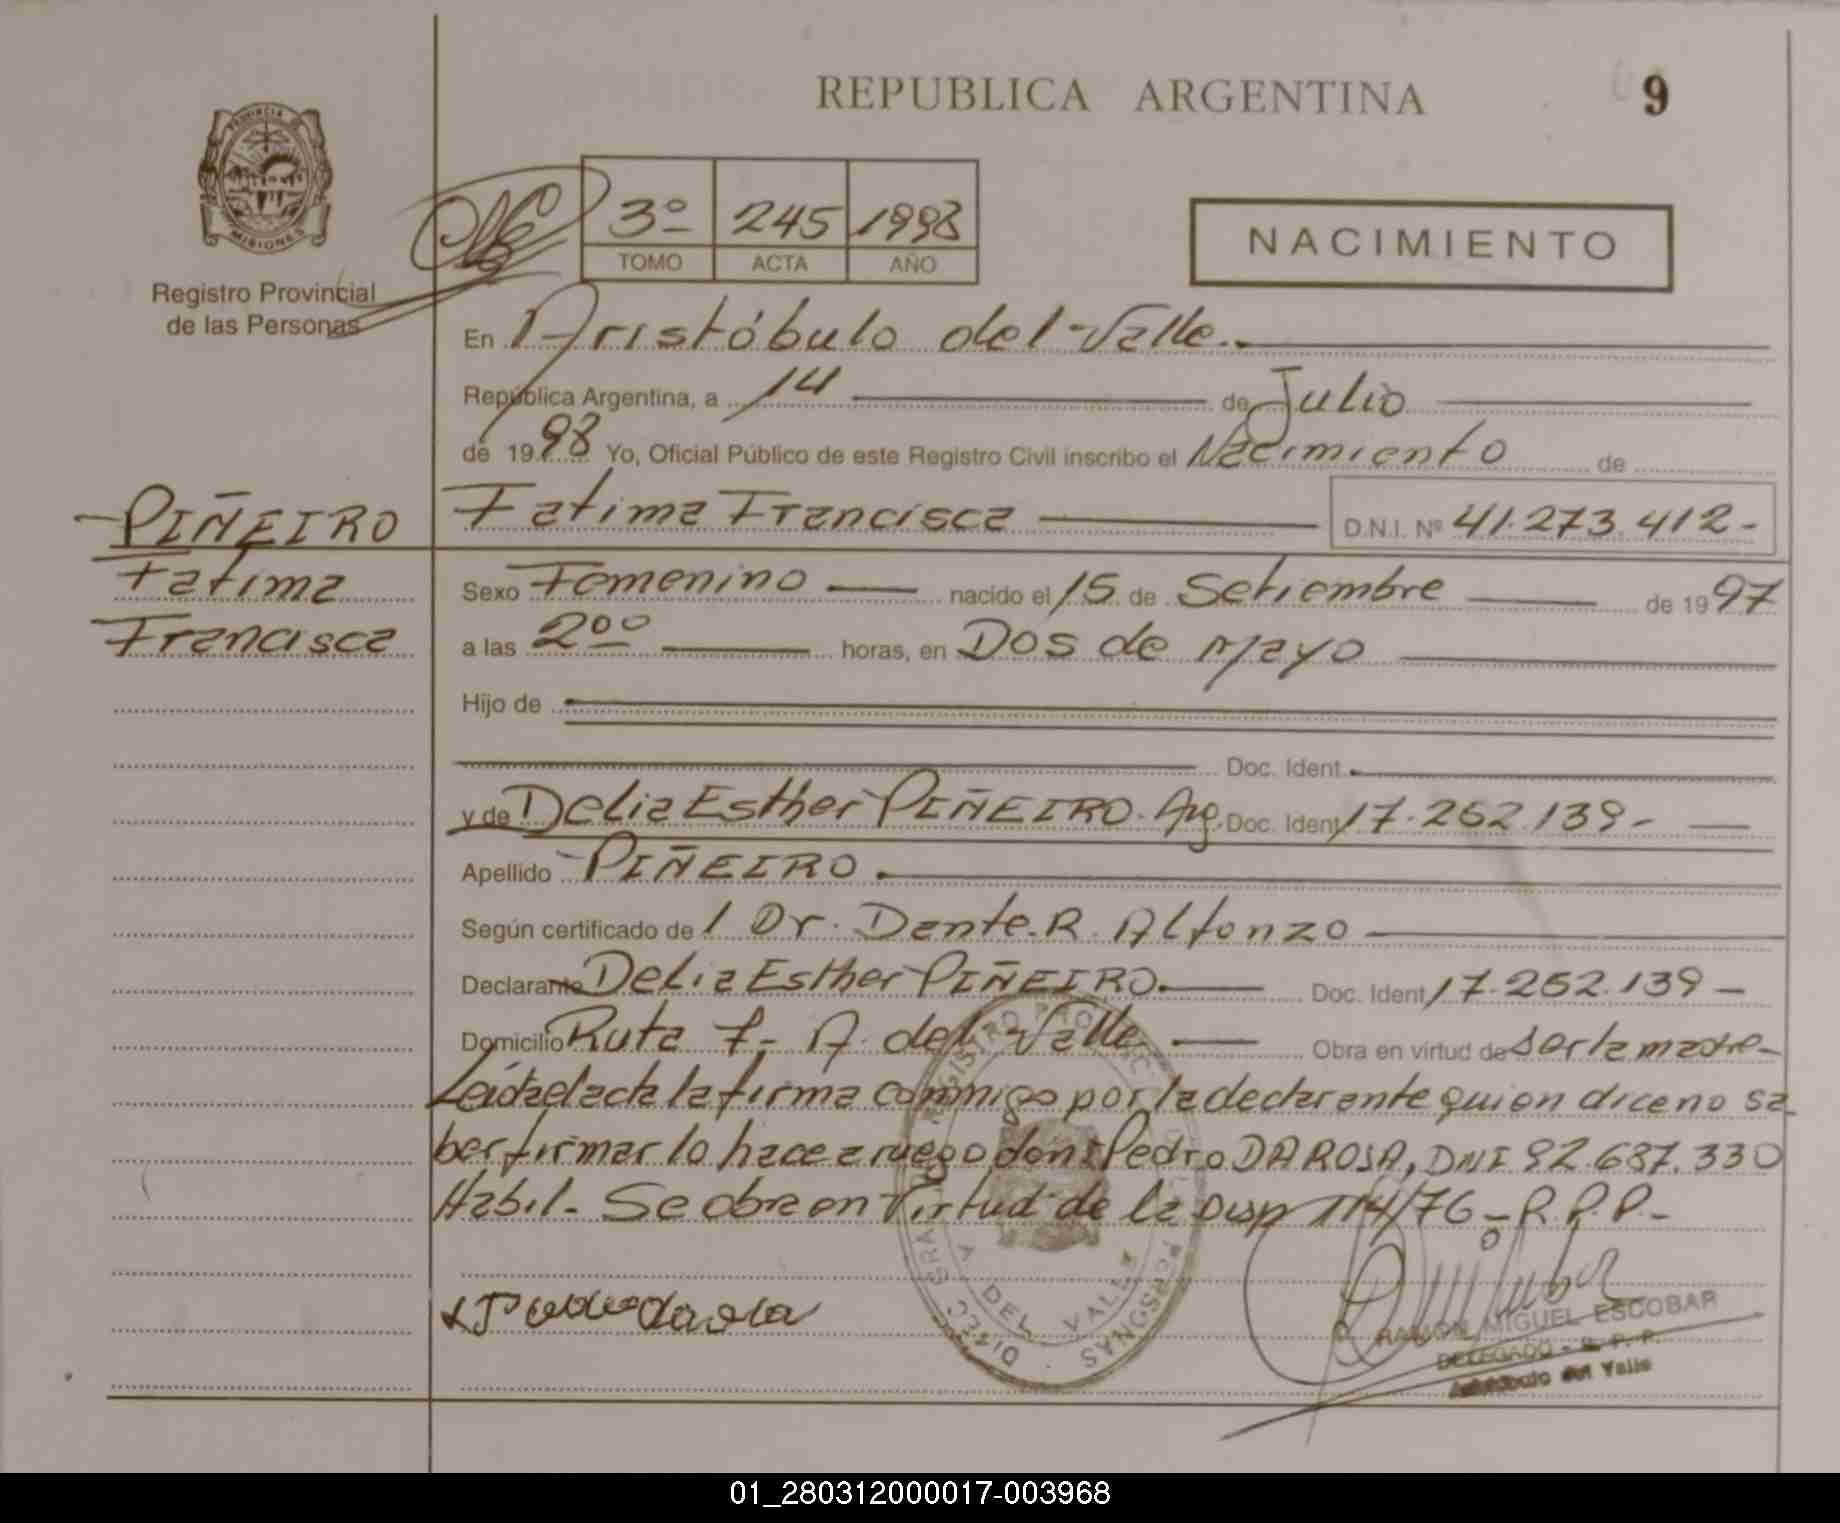 REPUBLICA ARGENTINA
9
PROVINCIA DE
MISIONES
Registro Provincial
de las Personas
3º 245 1998
TOMO ACTA AÑO
NACIMIENTO
En Aristóbulo del Valle.
República Argentina, a 14 de Julio
de 1998 Yo, Oficial Público de este Registro Civil inscribo el Nacimiento de
PIÑEIRO
Fatima
Francisca
Fatima Francisca D.N.I. Nº 41.273.412-
Sexo Femenino nacido el 15 de Setiembre de 1997
a las 2⁰⁰ horas, en Dos de Mayo
Hijo de
Doc. Ident.
y de Delia Esther PIÑEIRO. Arg. Doc. Ident 17.262.139-
Apellido PIÑEIRO
Según certificado de / Dr. Dante R. Alfonzo
Declarante Delia Esther PIÑEIRO. Doc. Ident 17.262.139-
Domicilio Ruta 7- A. del Valle Obra en virtud de ser la madre-
Leida el acta la firma conmigo por la declarante quien dice no sa-
ber firmar lo hace a ruego don: Pedro DA ROSA, DNI 92.687.330
Habil.- Se obra en virtud de la Disp 114/76- R.P.P.-
REGISTRO PROVINC. DE LAS PERSONAS
A. DEL VALLE
RAMON MIGUEL ESCOBAR
DELEGADO - R. P. P.
Aristóbulo del Valle
01_280312000017-003968